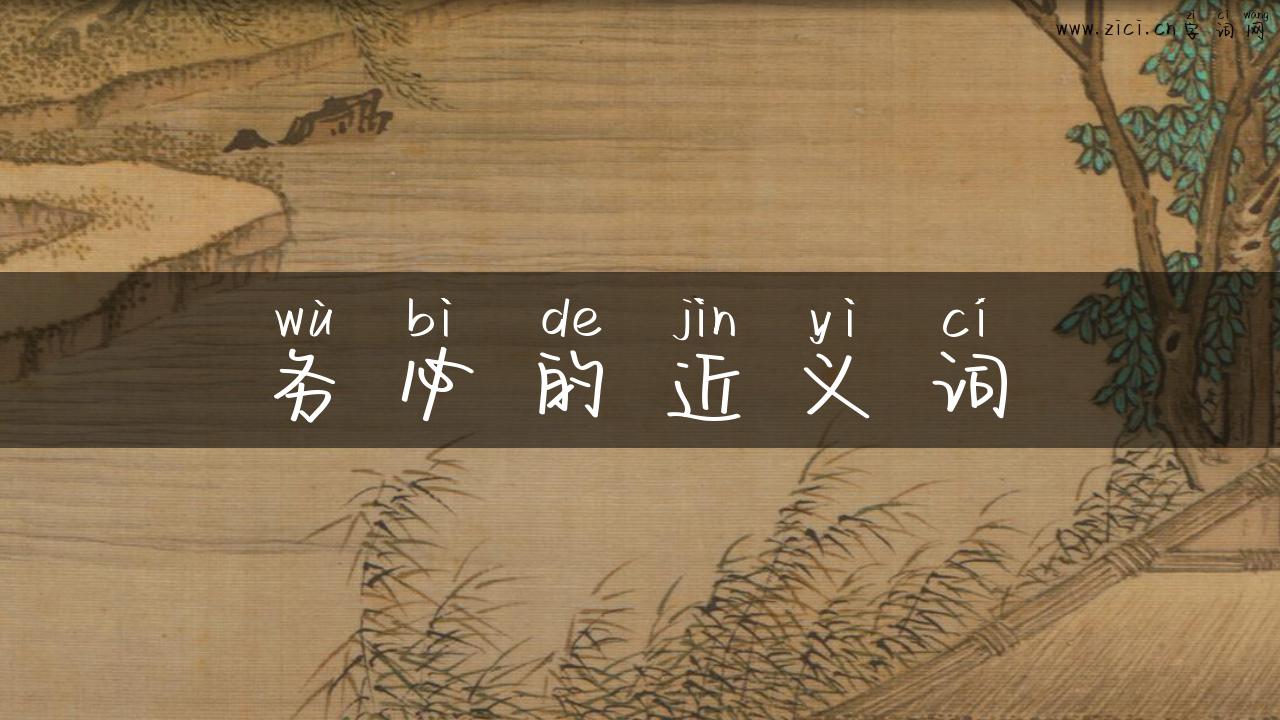 zì cí wǎng
www.zici.cn字词网
wù bì de jìn yì cí
务必的近义词